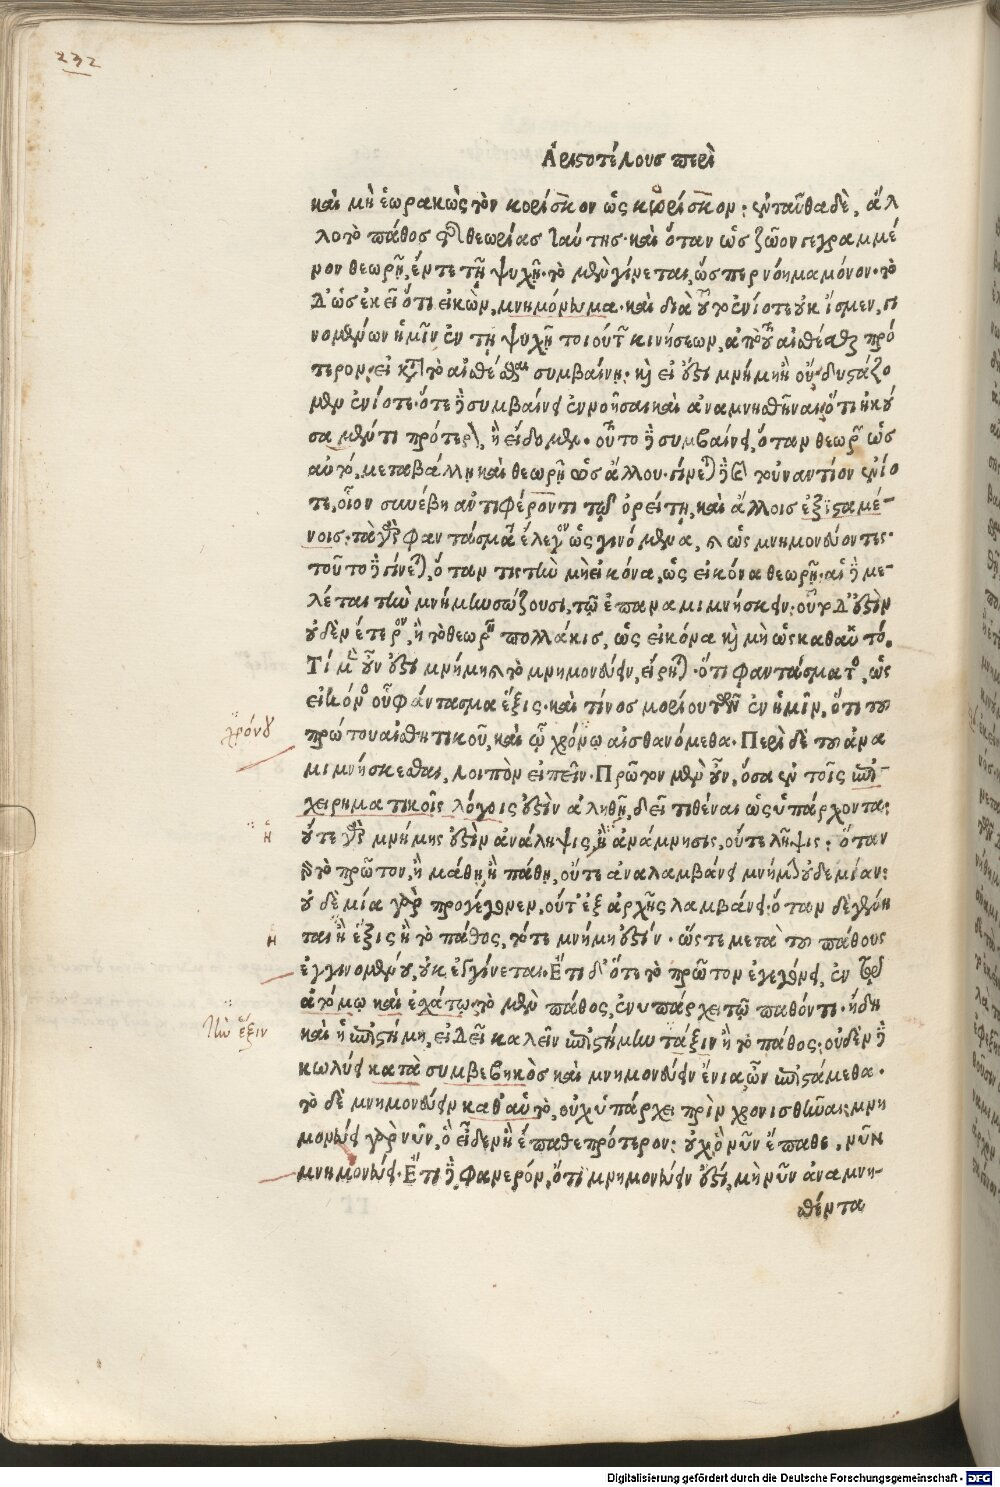 232
Ἀριστοτέλους περὶ
καὶ μὴ ἑωρακὼς τὸν κορίσκον ὡς κορίσκον· ἐνταῦθα δὲ, ἄλ
λο τὸ πάθος τῆς θεωρίας ταύτης· καὶ ὅταν ὡς ζῶον γεγραμμέ
νον θεωρῇ, ἔν τε τῇ ψυχῇ· τὸ μὲν γίνεται, ὥσπερ νόημα μόνον· τὸ
δ' ὡς ἐκεῖ ὅτι εἰκὼν, μνημόνευμα· καὶ διὰ τοῦτο ἐνίοτε οὐκ ἴσμεν, γι
νομένων ἡμῖν ἐν τῇ ψυχῇ τοιούτων κινήσεων, ἀπὸ τοῦ αἰσθέσθαι πρό
τερον, εἰ κατὰ τὸ αἰσθέσθαι συμβαίνῃ· καὶ εἰ ἔστι μνήμη ἢ οὔ, διστάζο
μεν ἐνίοτε· ὁτὲ δὲ συμβαίνει ἐννοῆσαι καὶ ἀναμνησθῆναι, ὅτι ἠκού
σαμέν τι πρότερον, ἢ εἴδομεν· τοῦτο δὲ συμβαίνει, ὅταν θεωρῶν ὡς
αὐτό, μεταβάλλῃ καὶ θεωρῇ ὡς ἄλλου· γίνεται δὲ καὶ τοὐναντίον ἐνίο
τε, οἷον συνέβη ἀντιφέροντι τῷ ὀρείτῃ, καὶ ἄλλοις ἐξισταμέ-
νοις· τὰ γὰρ φαντάσματα ἔλεγον ὡς γινόμενα, καὶ ὡς μνημονεύοντες·
τοῦτο δὲ γίνεται, ὅταν τις τὴν μὴ εἰκόνα, ὡς εἰκόνα θεωρῇ· αἱ δὲ με-
λέται τὴν μνήμην σώζουσι, τῷ ἐπαναμιμνήσκειν· τοῦτο δ' ἐστὶν
οὐδὲν ἕτερον, ἢ τὸ θεωρεῖν πολλάκις, ὡς εἰκόνα καὶ μὴ ὡς καθαὑτό.
Τί μὲν οὖν ἐστι μνήμη καὶ τὸ μνημονεύειν, εἴρηται· ὅτι φαντάσματος, ὡς
εἰκόνος οὗ φάντασμα ἕξις· καὶ τίνος μορίου τῶν ἐν ἡμῖν, ὅτι τοῦ
χρόνου
πρώτου αἰσθητικοῦ, καὶ ᾧ χρόνῳ αἰσθανόμεθα. Περὶ δὲ τοῦ ἀνα
μιμνήσκεσθαι, λοιπὸν εἰπεῖν. Πρῶτον μὲν οὖν, ὅσα ἐν τοῖς ἐπι-
χειρηματικοῖς λόγοις ἐστὶν ἀληθῆ, δεῖ τιθέναι ὡς ὑπάρχοντα·
ἡ
οὔτε γὰρ μνήμης ἐστὶν ἀνάληψις, ἢ ἀνάμνησις, οὔτε λῆψις· ὅταν
γὰρ τὸ πρῶτον, ἢ μάθῃ, ἢ πάθῃ, οὔτε ἀναλαμβάνει μνήμην οὐδεμίαν·
οὐδεμία γὰρ προγέγονεν, οὔτ' ἐξ ἀρχῆς λαμβάνει· ὅταν δὲ γένη
ἡ
ται ἢ ἕξις ἢ τὸ πάθος, τότε μνήμη ἐστίν· ὥστε μετὰ τοῦ πάθους
ἐγγινομένου, οὐκ ἐγγίνεται. Ἔτι δ' ὅτε τὸ πρῶτον ἐγγέγονε, ἐν τῷ
ἀτόμῳ καὶ ἐσχάτῳ· τὸ μὲν πάθος, ἐνυπάρχει τῷ παθόντι· ἤδη
τὴν ἕξιν
καὶ ἡ ἐπιστήμη, εἰ δεῖ καλεῖν ἐπιστήμην τάξιν ἢ τὸ πάθος· οὐδὲν δὲ
κωλύει κατὰ συμβεβηκὸς καὶ μνημονεύειν ἔνια ὧν ἐπιστάμεθα·
τὸ δὲ μνημονεύειν καθαὑτὸ, οὐχ ὑπάρχει πρὶν χρονισθῆναι· μνη
μονεύει γὰρ νῦν, ὃ εἶδεν ἢ ἔπαθε πρότερον· οὐχ ὃ νῦν ἔπαθε, νῦν
μνημονεύει. Ἔτι δὲ, φανερὸν, ὅτι μνημονεύειν ἐστὶ, μὴ νῦν ἀναμνη-
σθέντα
Digitalisierung gefördert durch die Deutsche Forschungsgemeinschaft - DFG